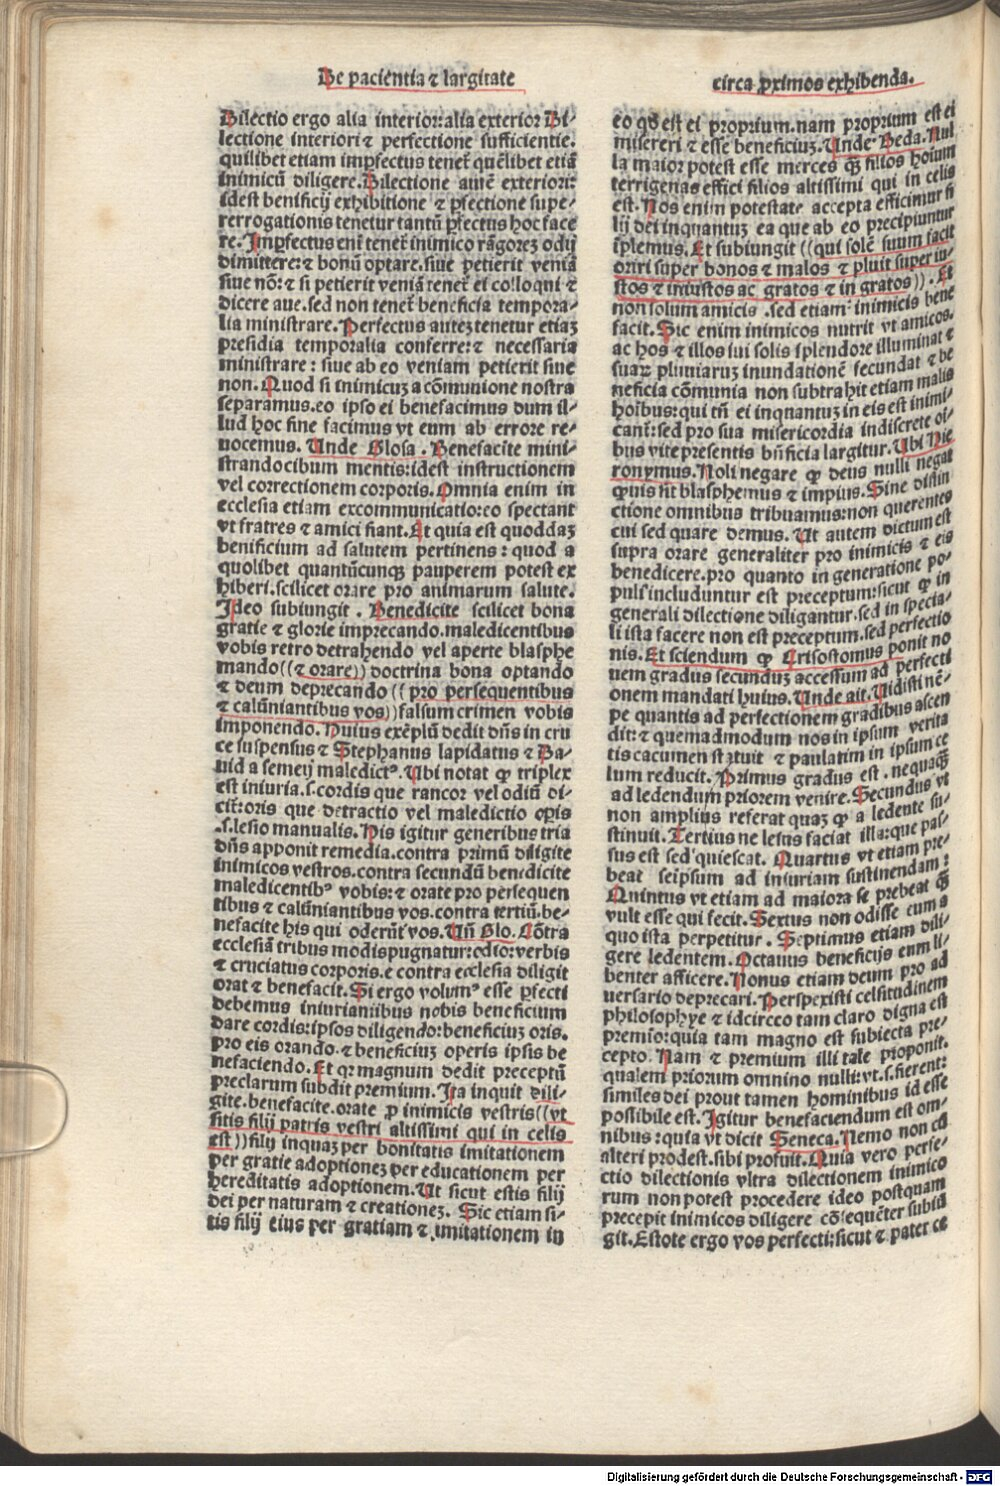 De paciẽtia ⁊ largitate
circa ꝓximos exhibenda.
Dilectio ergo alia interior:alia exterior Di⸗
lectione interiori ⁊ perfectione sufficientie.
quilibet etiam imꝑfectus tenet̃ quẽlibet etiã
inimicũ diligere.Dilectione autẽ exteriori:
idest benificij exhibitione ⁊ ꝑfectione supe⸗
rerrogationis tenetur tantũ ꝑfectus hoc face
re.Imꝑfectus enĩ tenet̃ inimico rãgorez odij
dimittere:⁊ bonũ optare.siue petierit veniã
siue nõ:⁊ si petierit veniã tenet̃ ei colloqui ⁊
dicere aue.sed non tenet̃ beneficia tempora⸗
lia ministrare.Perfectus autez tenetur etiaz
presidia temporalia conferre:⁊ necessaria
ministrare: siue ab eo veniam petierit siue
non.Quod si inimicuz a cõmunione nostra
separamus.eo ipso ei benefacimus dum il⸗
lud hoc fine facimus vt eum ab errore re⸗
uocemus. Unde Glosa. Benefacite mini⸗
strando cibum mentis:idest instructionem
vel correctionem corporis.Omnia enim in
ecclesia etiam excommunicatio:eo spectant
vt fratres ⁊ amici fiant.Et quia est quoddaz
benificium ad salutem pertinens: quod a
quolibet quantũcunqꝫ pauperem potest ex
hiberi.scilicet orare pro animarum salute.
Ideo subiungit. Benedicite scilicet bona
gratie ⁊ glorie imprecando.maledicentibus
vobis retro detrahendo vel aperte blasphe
mando((⁊ orare)) doctrina bona optando
⁊ deum deprecando ((pro persequentibus
⁊ calũniantibus vos))falsum crimen vobis
imponendo. Huius exẽplũ dedit dñs in cru
ce suspensus ⁊ Stephanus lapidatus ⁊ Da⸗
uid a semeij maledictꝰ. Ubi notat ꝙ triplex
est iniuria.s.cordis que rancor vel odiũ di⸗
cit̃:oris que detractio vel maledictio oꝑis
.s.lesio manualis.His igitur generibus tria
dñs apponit remedia.contra primũ diligite
inimicos vestros.contra secundũ benedicite
maledicentibꝰ vobis:⁊ orate pro persequen
tibus ⁊ calũniantibus vos.contra tertiũ.be⸗
nefacite his qui oderũt vos.Uñ Glo. Cõtra
ecclesiã tribus modis pugnatur:odio:verbis
⁊ cruciatus corporis.e contra ecclesia diligit
orat ⁊ benefacit.Si ergo volumꝰ esse ꝑfecti
debemus iniuriantibus nobis beneficium
dare cordis:ipsos diligendo:beneficiuz oris.
pro eis orando.⁊ beneficiuz operis ipsis be
nefaciendo. Et qꝛ magnum dedit preceptũ
preclarum subdit premium. Ita inquit dili⸗
gite.benefacite.orate ꝓ inimicis vestris((vt
sitis filij patris vestri altissimi qui in celis
est))filij inquaz per bonitatis imitationem
per gratie adoptionez per educationem per
hereditatis adoptionem.Ut sicut estis filij
dei per naturam ⁊ creationez. Sic etiam si⸗
tis filij eius per gratiam ⁊ imitationem in
eo qd est ei proprium.nam proprium est ei
misereri ⁊ esse beneficiuz.Unde Beda.Nul
la maior potest esse merces qꝫ filios hoĩum
terrigenas effici filios altissimi qui in celis
est.Nos enim potestate accepta efficimur fi
lij dei inquantuz ea que ab eo precipiuntur
ĩplemus.Et subiungit ((qui solẽ suum facit
oriri super bonos ⁊ malos ⁊ pluit super iu⸗
stos ⁊ iniustos ac gratos ⁊ in gratos)). Et
non solum amicis .sed etiam inimicis bene
facit.Sic enim inimicos nutrit vt amicos.
ac hos ⁊ illos sui solis splendore illuminat ⁊
suaꝝ pluuiaruz inundationẽ fecundat ⁊ be
neficia cõmunia non subtrahit etiam malis
hoĩbus:qui tñ ei inquantuz in eis est inimi⸗
cant̃:sed pro sua misericordia indiscrete oĩ⸗
bus vite presentis bñficia largitur.Ubi Hie
ronymus.Noli negare ꝙ deus nulli negat
quis sit blasphemus ⁊ impius.Sine distin
ctione omnibus tribuamus:non querentes
cui sed quare demus. Ut autem dictum est
supra orare generaliter pro inimicis ⁊ eis
benedicere.pro quanto in generatione po⸗
puli includuntur est preceptum:sicut ꝙ in
generali dilectione diligantur.sed in specia⸗
li ista facere non est preceptum.sed perfectio
nis.Et sciendum ꝙ Crisostomus ponit no
uem gradus secunduz accessum ad perfecti
onem mandati huius.Unde ait.Vidisti nẽ⸗
pe quantis ad perfectionem gradibus ascen
dit:⁊ quemadmodum nos in ipsum verita
tis cacumen statuit ⁊ paulatim in ipsum ce
lum reducit. Primus gradus est .nequaqꝫ
ad ledendum priorem venire.Secundus vt
non amplius referat quaz ꝙ a ledente su⸗
stinuit.Tertius ne lesus faciat illa:que pas⸗
sus est sed quiescat. Quartus vt etiam pre⸗
beat seipsum ad iniuriam sustinendam:
Quintus vt etiam ad maiora se prebeat qꝫ
vult esse qui fecit.Sextus non odisse eum a
quo ista perpetitur. Septimus etiam dili⸗
gere ledentem.Octauus beneficijs eum li⸗
benter afficere.Nonus etiam deum pro ad
uersario deprecari.Perspexisti celsitudinem
philosophye ⁊ idcirco tam claro digna est
premio:quia tam magno est subiecta pre⸗
cepto.Nam ⁊ premium illi tale proponit.
qualem priorum omnino nulli:vt.s.fierent:
similes dei prout tamen hominibus id esse
possibile est.Igitur benefaciendum est om⸗
nibus:quia vt dicit Seneca.Nemo non cũ
alteri prodest.sibi profuit.Quia vero perfe⸗
ctio dilectionis vltra dilectionem inimico
rum non potest procedere ideo postquam
precepit inimicos diligere cõsequẽter subiũ
git.Estote ergo vos perfecti:sicut ⁊ pater ce
Digitalisierung gefördert durch die Deutsche Forschungsgemeinschaft - DFG